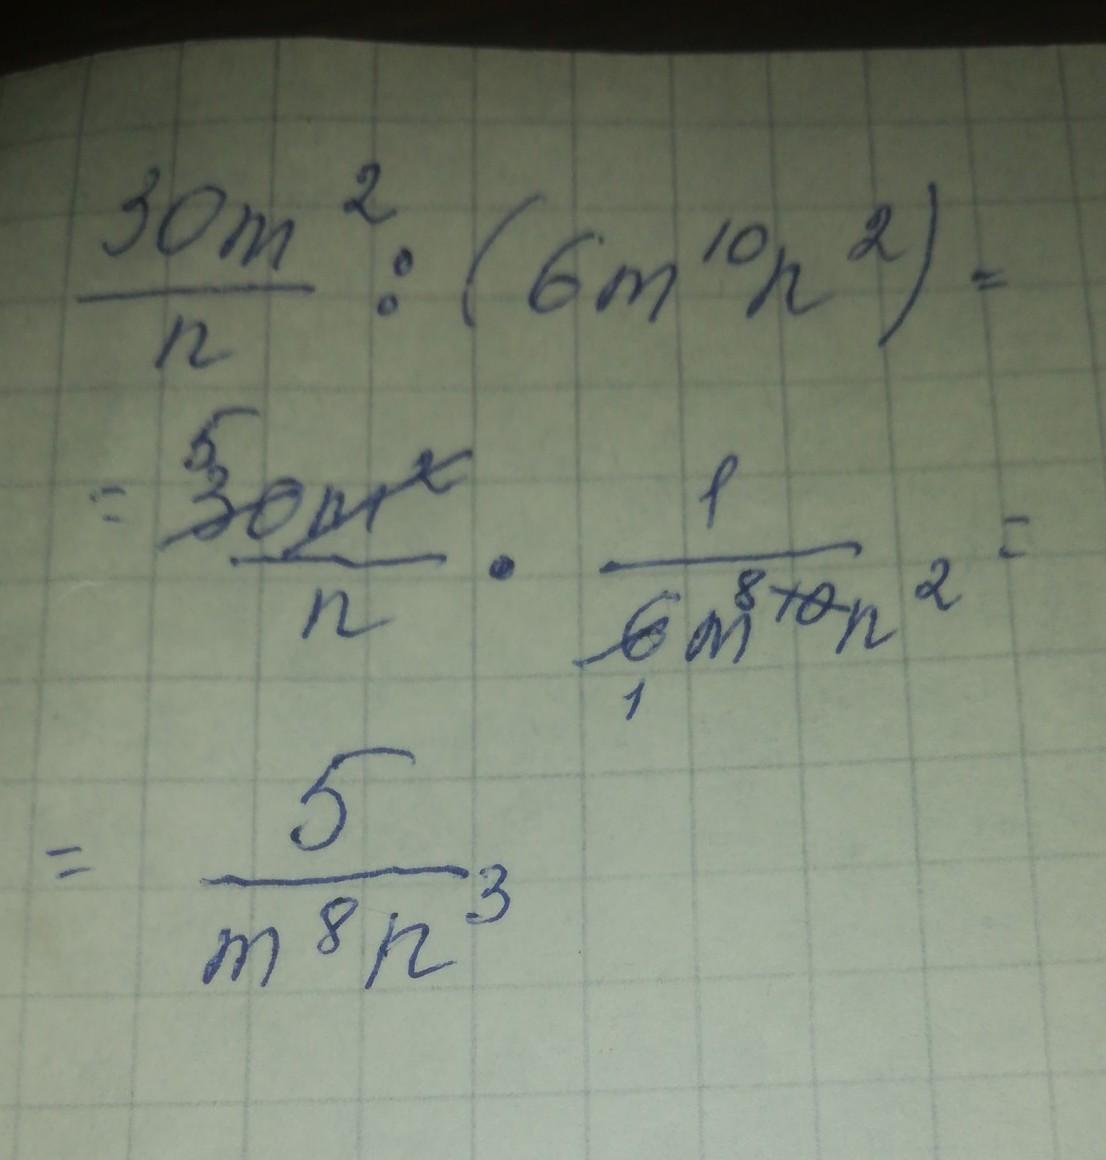 30m²/n : (6m¹⁰n²) =
= 5 30m²/n · 1/6m⁸ ¹⁰n² =
1
= 5/m⁸n³